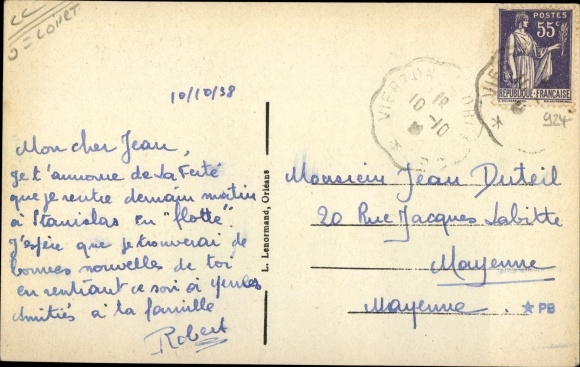 CC
D = LOIRET
POSTES
55c
RÉPUBLIQUE-FRANÇAISE
924
VIERZON
18
10-10
10/10/38
Mon cher Jean,
je t'annonce de la Ferté
que je rentre demain matin
à Stanislas en "flotte".
J'espère que je trouverai de
bonnes nouvelles de toi
en rentrant ce soir à
Amitiés à ta famille
Robert
L. Lenormand, Orléans
Monsieur Jean Duteil
20 Rue Jacques Labitte
Mayenne
Mayenne.
PB